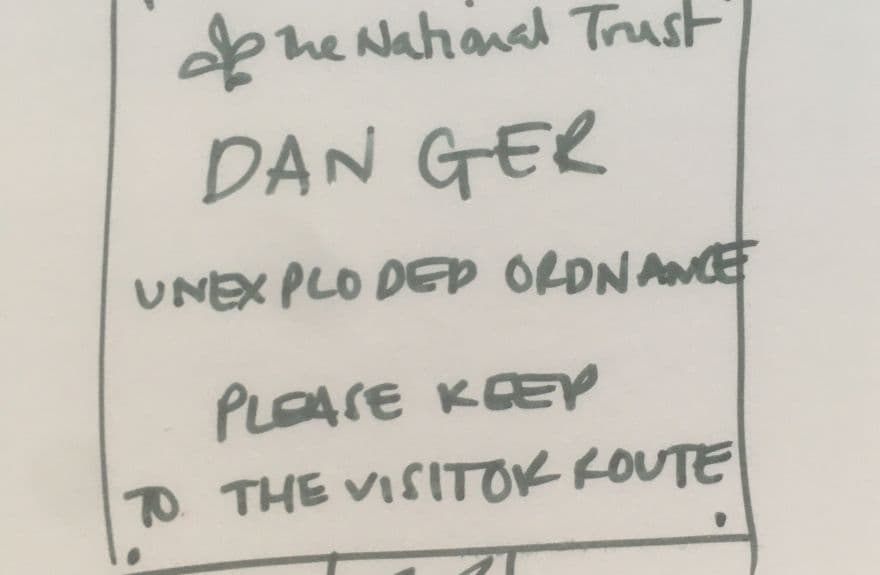 The National Trust
DANGER
UNEXPLODED ORDNANCE
PLEASE KEEP
TO THE VISITOR ROUTE